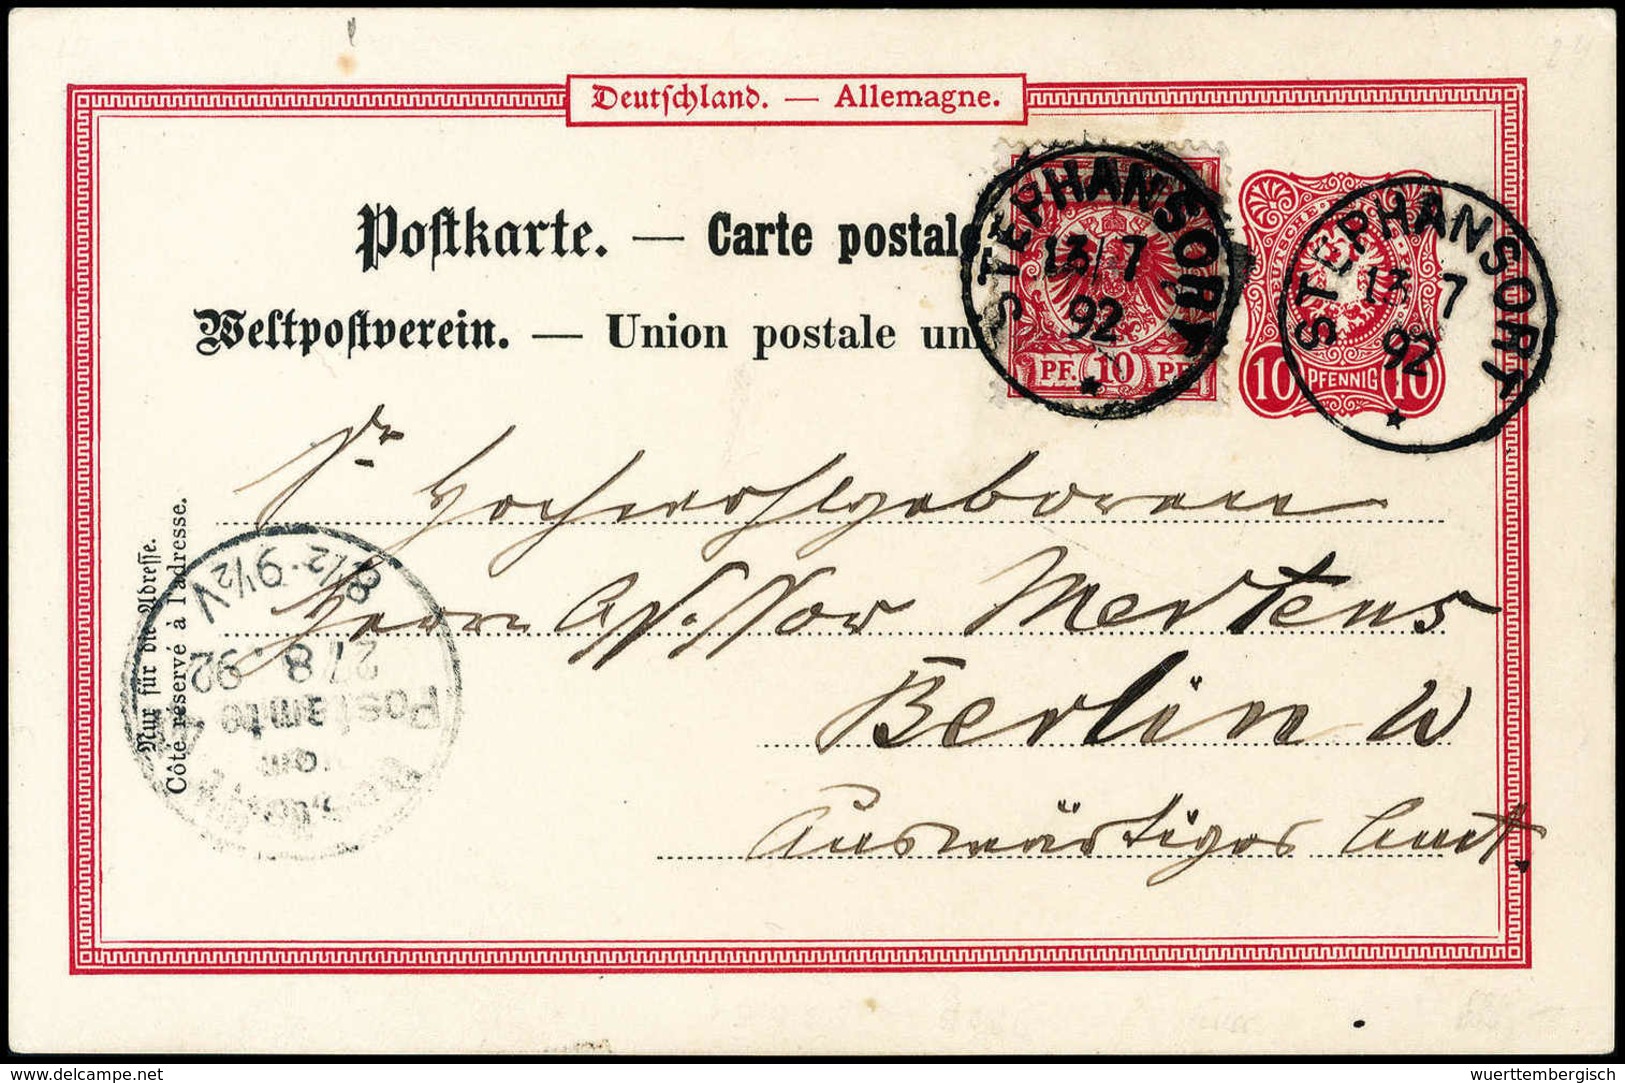 Deutschland. — Allemagne.
Postkarte. — Carte postale
Weltpostverein. — Union postale un
STEPHANSORT
13/7
92
PF. 10 PF
DEUTSCHE
STEPHANSORT
13 7
92
10 PFENNIG 10
Sr Hochwohlgeboren
Herrn Assessor Mertens
Berlin W
Auswärtiges Amt.
Nur für die Adresse.
Côté réservé à l'adresse.
8½-9½V
27 8. 92
Postamte
vom
Bestellt
wuerttembergisch
www.delcampe.net